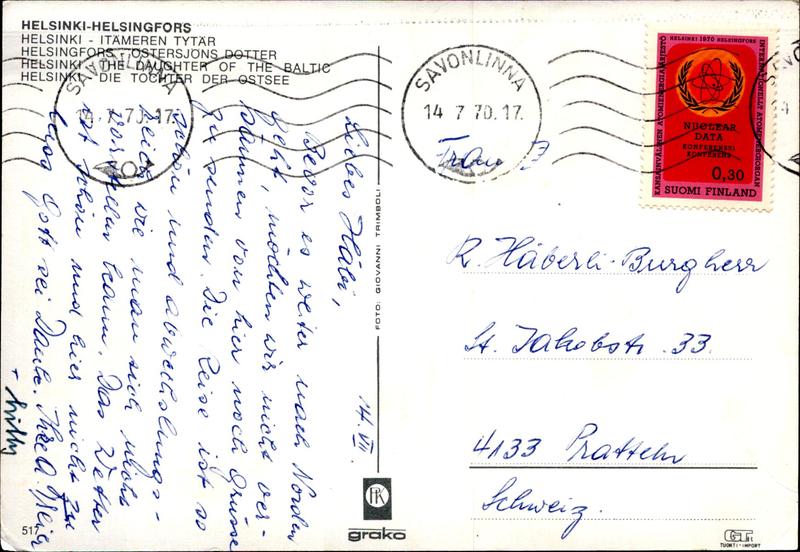 HELSINKI-HELSINGFORS
HELSINKI - ITÄMEREN TYTÄR
HELSINGFORS - ÖSTERSJÖNS DOTTER
HELSINKI - THE DAUGHTER OF THE BALTIC
HELSINKI - DIE TOCHTER DER OSTSEE
SAVONLINNA
14.7.70.17.
SAVONLINNA
14 7 70.17.
HELSINKI 1970 HELSINGFORS
KANSAINVÄLINEN ATOMIENERGIAJÄRJESTÖ
INTERNATIONELLT ATOMENERGIORGAN
NUCLEAR
DATA
KONFERENSSI
KONFERENS
0,30
SUOMI FINLAND
14. VII.
Liebes Häbi,
Bevor es weiter nach Norden
geht, möchten wir nicht ver-
säumen von hier noch Grüsse
zu senden. Die Reise ist so
schön und abwechslungs-
reich wie man sich
vorstellen kann. Das Wetter
ist schön und hier nicht zu
heiss Gott sei Dank. Ihre
+ Willy
Frau
R. Häberli-Burgherr
St. Jakobstr. 33.
4133 Pratteln
Schweiz.
FOTO: GIOVANNI TRIMBOLI
grako
517
TUONTI-IMPORT